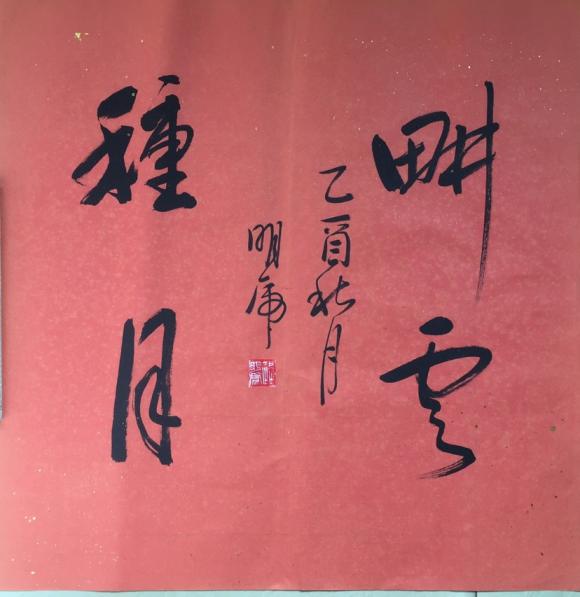 畊雲
種月
乙酉秋月
明虎